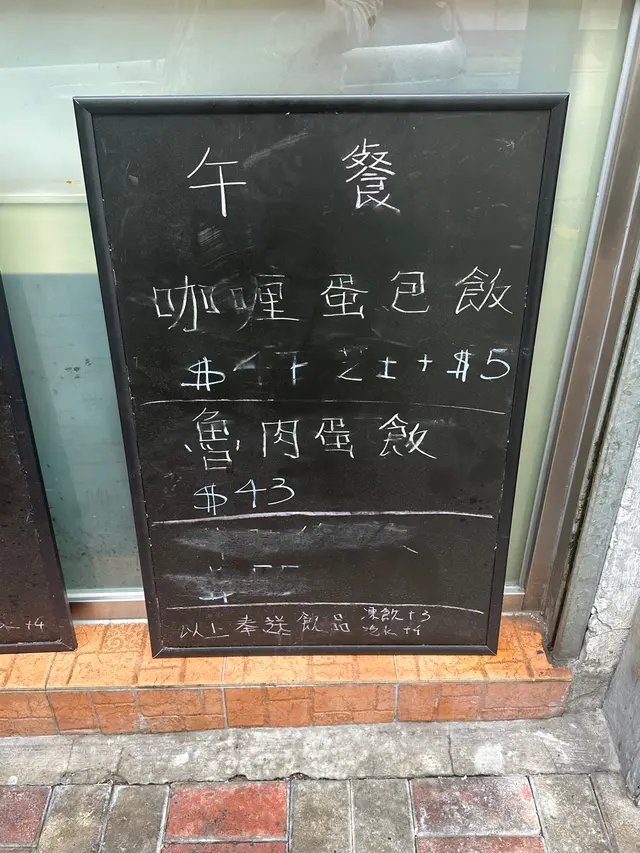 午餐
咖喱蛋包飯
$ 芝士+$5
魯肉蛋飯
$43
以上奉送飲品 凍飲+3
汽水+4
+4